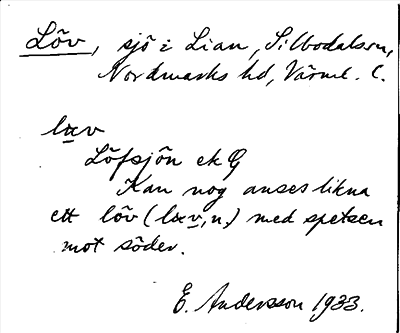 Löv, sjö i Lian, Silbodalssn,
Nordmarks hd, Värml. l.
lœv
Löfsjön ek G
Kan nog anses likna
ett löv (lœv, n.) med spetsen
mot söder.
E. Andersson 1933.